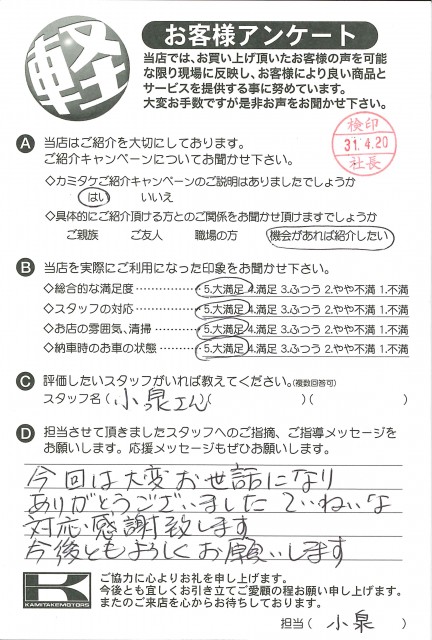 軽
お客様アンケート
当店では、お買い上げ頂いたお客様の声を可能
な限り現場に反映し、お客様により良い商品と
サービスを提供する事に努めています。
大変お手数ですが是非お声をお聞かせ下さい。
検印
31.4.20
社長
A 当店はご紹介を大切にしております。
ご紹介キャンペーンについてお聞かせ下さい。
◇カミタケご紹介キャンペーンのご説明はありましたでしょうか
はい いいえ
◇具体的にご紹介頂ける方とのご関係をお聞かせ頂けますでしょうか
ご親族 ご友人 職場の方 機会があれば紹介したい
B 当店を実際にご利用になった印象をお聞かせ下さい。
◇総合的な満足度………… 5.大満足 4.満足 3.ふつう 2.やや不満 1.不満
◇スタッフの対応………… 5.大満足 4.満足 3.ふつう 2.やや不満 1.不満
◇お店の雰囲気、清掃…… 5.大満足 4.満足 3.ふつう 2.やや不満 1.不満
◇納車時のお車の状態…… 5.大満足 4.満足 3.ふつう 2.やや不満 1.不満
C 評価したいスタッフがいれば教えてください。(複数回答可)
スタッフ名(小泉さん )( )( )
D 担当させて頂きましたスタッフへのご指摘、ご指導メッセージを
お願いします。応援メッセージもぜひお願いします。
今回は大変お世話になり
ありがとうございました ていねいな
対応感謝致します
今後ともよろしくお願いします
K
KAMITAKEMOTORS
ご協力に心よりお礼を申し上げます。
今後とも宜しくお引き立てご愛顧の程お願い申し上げます。
またのご来店を心からお待ちしております。
担当( 小泉 )